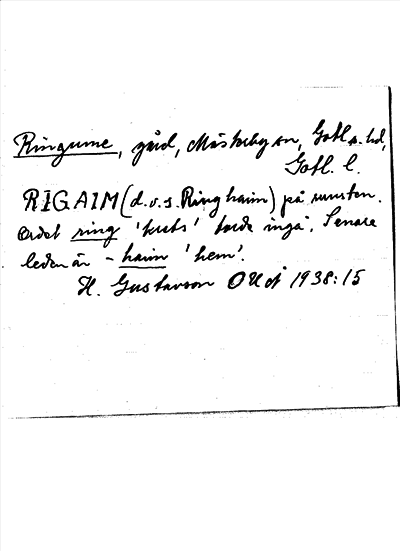 Ringume, gård, Mästerby sn, Gotl. s. hd,
Gotl. l.
RIGAIM (d.v.s. Ringhaim) på runsten.
Ordet ring 'krets' torde ingå. Senare
leden är -haim 'hem'.
H. Gustavson OUoÅ 1938:15